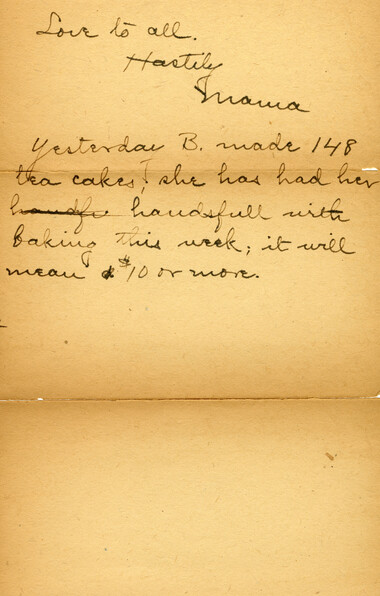 Love to all.
Hastily
Mama
Yesterday B. made 148
tea cakes! she has had her
handfu handsfull with
baking this week; it will
mean $10 or more.